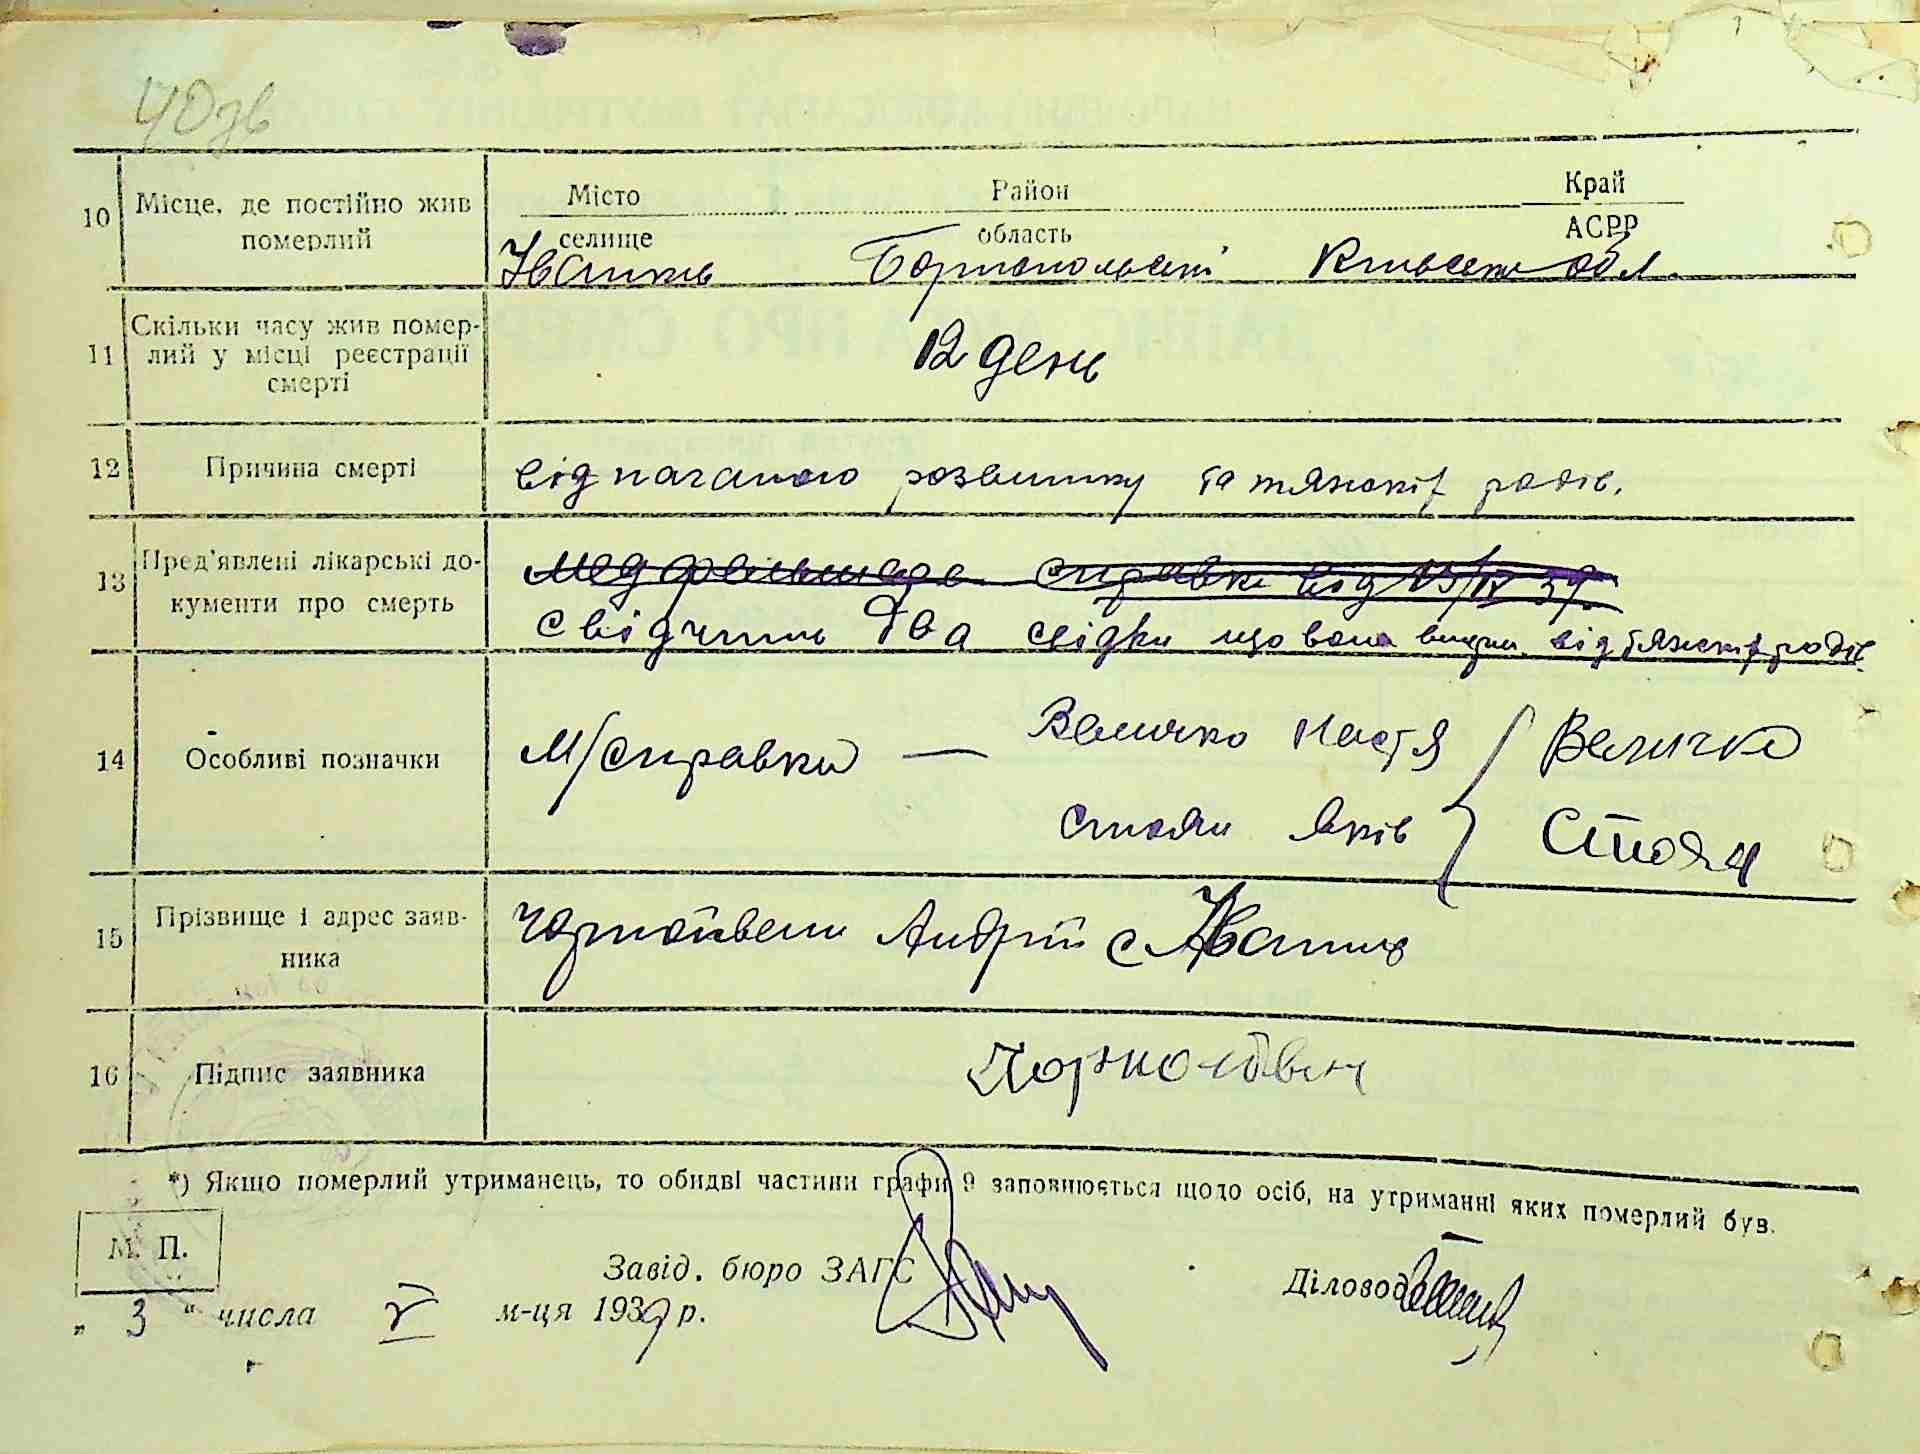 40зв
10 Місце, де постійно жив померлий
Місто Район Край
селище область АСРР
Іванків Бориспольський Київська обл.
11 Скільки часу жив помер-
лий у місці реєстрації
смерті
12 день
12 Причина смерті
від поганого розвитку та тяжких родів.
13 Пред'явлені лікарські до-
кументи про смерть
справка від 13/IV 39
свідчить два свідки що вона від тяжких родів
14 Особливі позначки
М/справки — Величко Настя Величко
Стоян Яків Стоян
15 Прізвище і адрес заяв-
ника
Чорнойван Андрій с Іванків
16 Підпис заявника
*) Якщо померлий утриманець, то обидві частини графи 9 заповнюється щодо осіб, на утриманні яких померлий був.
М. П.
Завід. бюро ЗАГС
Діловод
„ 3 " числа V м-ця 1939 р.